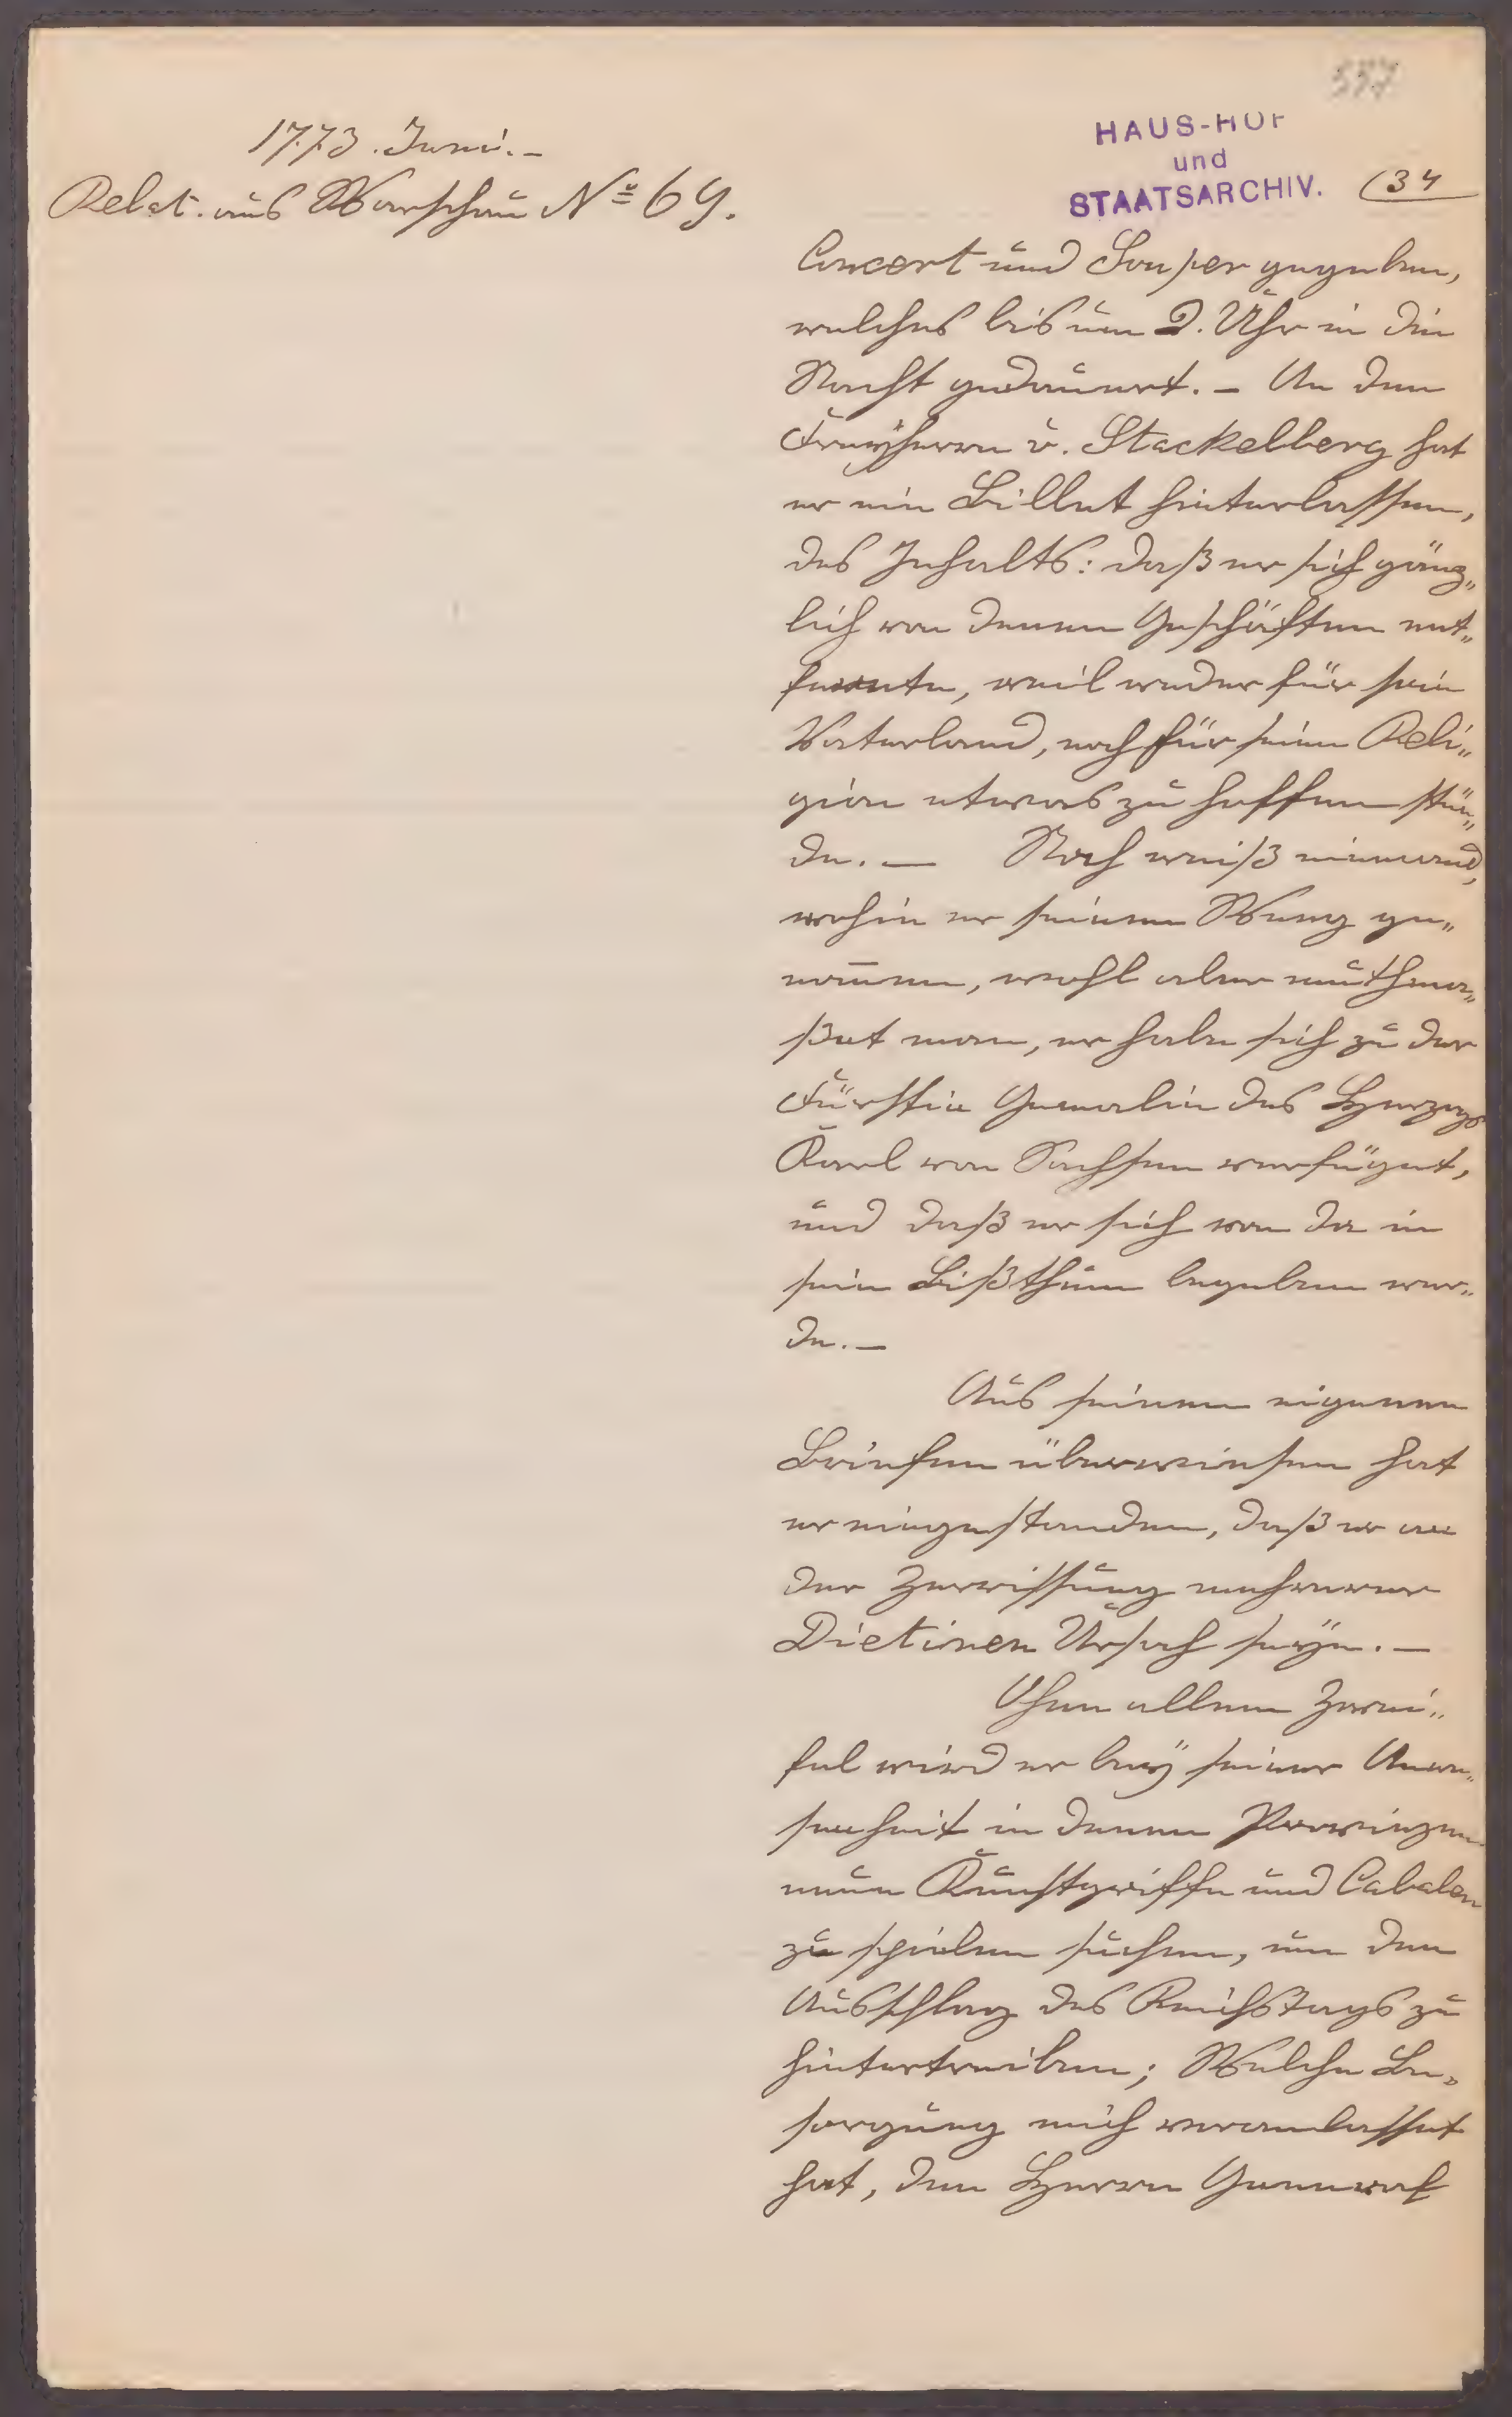 557
1773. Juni. –
Relat. aus Warschau No 69.
HAUS-HOF
und
STAATSARCHIV.
(34
Concert und Souper gegeben,
welches bis um 2. Uhr in die
Nacht gedauert. – An den
Freyherrn v. Stackelberg hat
er ein Billet hinterlassen,
des Inhalts: daß er sich gänz„
lich von denen Geschäften ent„
fernte, weil weder für sein
Vaterland, noch für seine Reli„
gion etwas zu hoffen stün„
de. – Noch weiß niemand,
wohin er seinen Weeg ge„
nom̄en, wohl aber muthma„
ßet man, er habe sich zu der
Fürstin Gemalin des Herzogs
Karl von Sachsen verfüget,
und daß er sich von da in
sein Bißthum begeben wer„
de. –
Aus seinen eigenen
Briefen überwiesen hat
er eingestanden, daß er an
der Zerrissung mehrerer
Dietinen Ursach seÿe. –
Ohne allem Zwei„
fel wird er beÿ seiner Anwe„
senheit in denen Provinzen
neue Kunstgriffe und Cabalen
zu spielen suchen, um den
Ausschlag des Reichstags zu
hintertreiben; Welche Be„
sorgung mich veranlasset
hat, den Herrn General